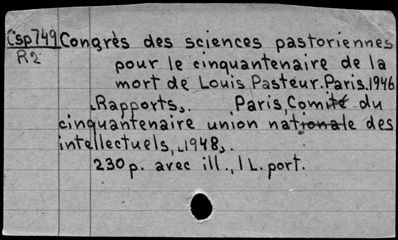 Csp749 Congrès des sciences pastoriennes
R2 pour le cinquantenaire de la
mort de Louis Pasteur. Paris. 1946
„Rapports„. Paris, Comité du
cinquantenaire union nationale des
intellectuels, „1948„.
230 p. avec ill., 1 L. port.